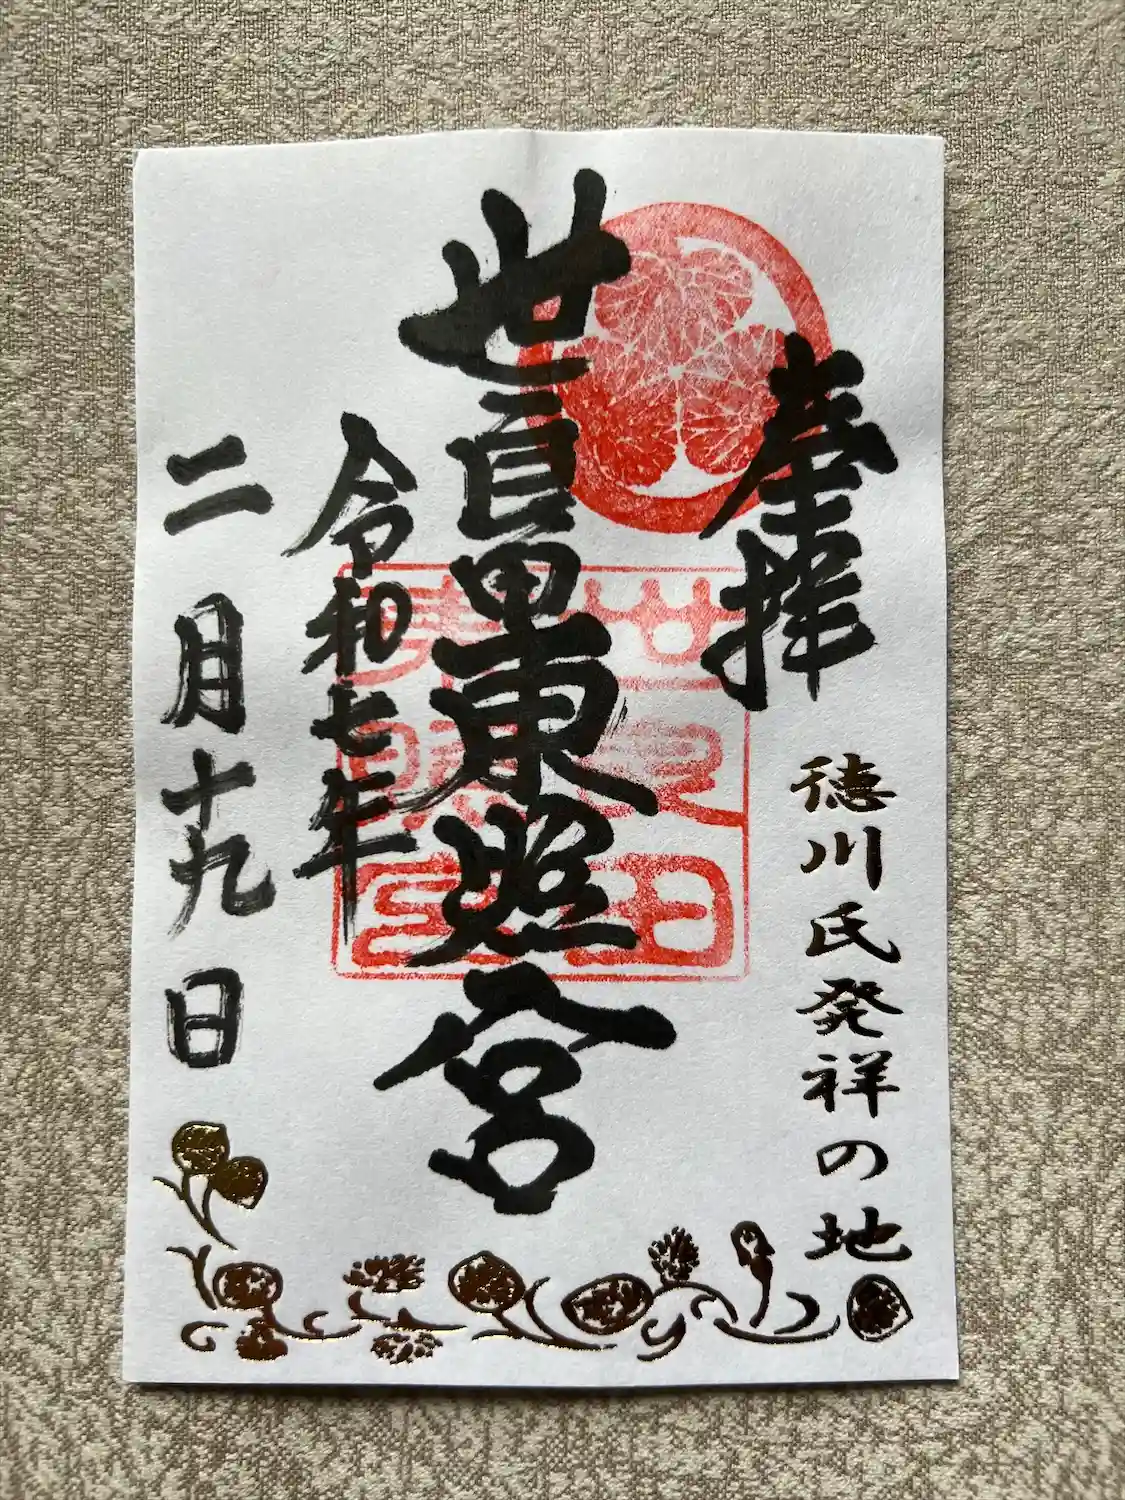 奉拝
徳川氏発祥の地
世良田東照宮
令和七年
二月十九日
世良田
東照宮